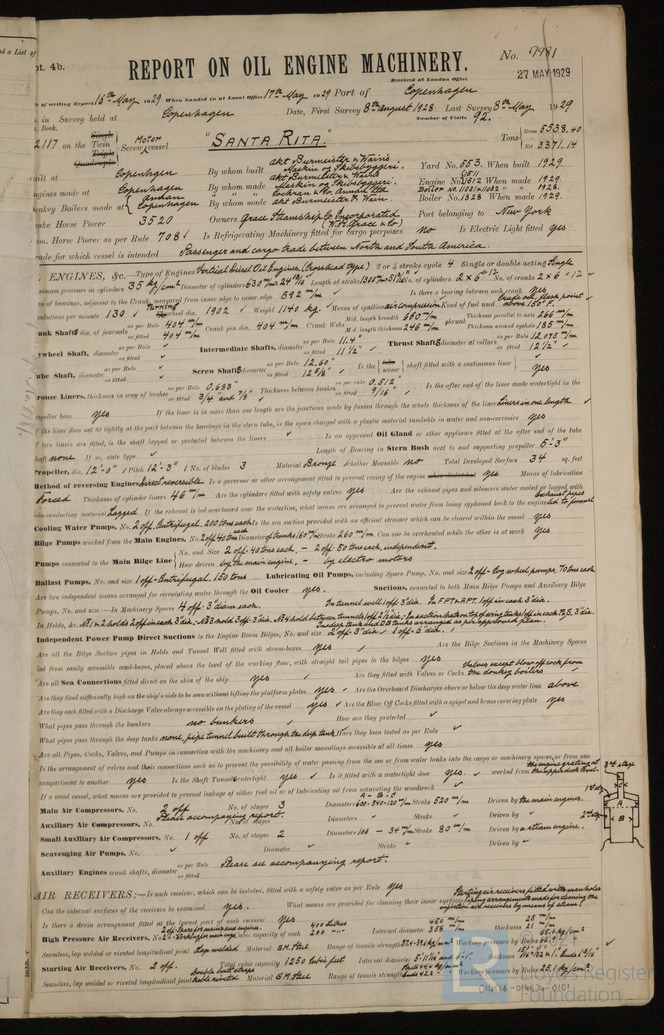 d a List of
pt. 4b.
REPORT ON OIL ENGINE MACHINERY.
No. 7981
Received at London Office
27 MAY 1929
of writing Report 16th May 1929 When handed in at Local Office 17th May 1929 Port of Copenhagen
in Survey held at Copenhagen Date, First Survey 8th August 1928 Last Survey 8th May 1929
Book. Number of Visits 92.
2117 on the Single Twin Triple Quadruple Screw Motor vessel "SANTA RITA." Tons Gross 5538.40 Net 3371.14
uilt at Copenhagen By whom built Akt Burmeister & Wain's Maskin og Skibsbyggeri. Yard No. 553. When built 1929.
ngines made at Copenhagen By whom made Akt Burmeister & Wain's Maskin og Skibsbyggeri. Engine No. 1511 1512 When made 1929.
onkey Boilers made at Annan Copenhagen By whom made Cochran & Co, Annan Ltd. Akt Burmeister & Wain. Boiler No. 1328 When made 1929.
rake Horse Power 3520 Owners Grace Steamship Co. Incorporated (W. R. Grace & Co) Port belonging to New York
om. Horse Power as per Rule 708 Is Refrigerating Machinery fitted for cargo purposes no Is Electric Light fitted yes
rade for which vessel is intended Passenger and cargo trade between North and South America.
ENGINES, &c.—Type of Engines Vertical Diesel Oil Engines, (Crosshead type) 2 or 4 stroke cycle 4 Single or double acting Single
mum pressure in cylinders 35 kg/cm² Diameter of cylinders 630 m/m 24 13/16" Length of stroke 1300 m/m No. of cylinders 2 x 6 = 12 No. of cranks 2 x 6 = 12
of bearings, adjacent to the Crank, measured from inner edge to inner edge 892 m/m Is there a bearing between each crank yes
olutions per minute 130 Turning wheel dia. 1902 Weight 1140 kg. Means of ignition air compression Kind of fuel used Crude oil, flash point above 150° F.
rank Shaft, dia. of journals as per Rule 404 m/m as fitted 404 m/m Crank pin dia. 404 m/m Crank Webs Mid. length breadth 680 m/m Mid. length thickness 246 m/m shrunk Thickness parallel to axis 266 m/m Thickness around eyehole 185 m/m
lywheel Shaft, diameter as per Rule as fitted Intermediate Shafts, diameter as per Rule 11.4" as fitted 11 1/2" Thrust Shafts, diameter at collars as per Rule 12.075 m/m as fitted 12 1/2"
ube Shaft, diameter as per Rule as fitted Screw Shaft, diameter as per Rule 12.60" as fitted 12 5/8" Is the tube screw shaft fitted with a continuous liner yes
ronze Liners, thickness in way of bushes as per Rule 0.683" as fitted 3/4" and 7/8" Thickness between bushes as per Rule 0.512" as fitted 9/16" Is the after end of the liner made watertight in the
ropeller boss yes If the liner is in more than one length are the junctions made by fusion through the whole thickness of the liner Liners in one length
f the liner does not fit tightly at the part between the bearings in the stern tube, is the space charged with a plastic material insoluble in water and non-corrosive yes
f two liners are fitted, is the shaft lapped or protected between the liners Is an approved Oil Gland or other appliance fitted at the after end of the tube
shaft none If so, state type Length of Bearing in Stern Bush next to and supporting propeller 5'-3"
Propeller, dia. 12'-0" Pitch 12'-3" No. of blades 3 Material Bronze whether Moveable no Total Developed Surface 34 sq. feet
Method of reversing Engines Direct reversible Is a governor or other arrangement fitted to prevent racing of the engine when declutched yes Means of lubrication
Forced Thickness of cylinder liners 46 m/m Are the cylinders fitted with safety valves yes Are the exhaust pipes and silencers water cooled or lagged with
non-conducting material Lagged If the exhaust is led overboard near the waterline, what means are arranged to prevent water from being syphoned back to the engine exhaust pipes led to funnel
Cooling Water Pumps, No. 2 off Centrifugal, 200 tons each Is the sea suction provided with an efficient strainer which can be cleared within the vessel yes
Bilge Pumps worked from the Main Engines, No. 2 off 40 tons each Diameter of trunks 160 m/m Stroke 260 m/m Can one be overhauled while the other is at work yes
Pumps connected to the Main Bilge Line No. and Size 2 off. 40 tons each, - 2 off 50 tons each, independent. How driven by the main engine, - by electro motors
Ballast Pumps, No. and size 1 off - Centrifugal, 150 tons Lubricating Oil Pumps, including Spare Pump, No. and size 2 off - Cog wheel pumps, 70 tons each
Are two independent means arranged for circulating water through the Oil Cooler yes. Suctions, connected to both Main Bilge Pumps and Auxiliary Bilge
Pumps, No. and size:—In Machinery Spaces 4 off - 3" diam each. In tunnel well 1 off 3" dia. In F.P.T & A.P.T. 1 off in each 3" dia.
In Holds, &c.
Independent Power Pump Direct Suctions to the Engine Room Bilges, No. and size 2 off - 3" dia. 1 off - 5" dia.
Are all the Bilge Suction pipes in Holds and Tunnel Well fitted with strum-boxes yes Are the Bilge Suctions in the Machinery Spaces
led from easily accessible mud-boxes, placed above the level of the working floor, with straight tail pipes to the bilges yes
Are all Sea Connections fitted direct on the skin of the ship yes Are they fitted with Valves or Cocks Valves except blow off cock from the donkey boilers
Are they fixed sufficiently high on the ship's side to be seen without lifting the platform plates yes Are the Overboard Discharges above or below the deep water line above
Are they each fitted with a Discharge Valve always accessible on the plating of the vessel yes Are the Blow Off Cocks fitted with a spigot and brass covering plate yes
What pipes pass through the bunkers no bunkers How are they protected
What pipes pass through the deep tanks none, pipe tunnel built through the deep tank Have they been tested as per Rule
Are all Pipes, Cocks, Valves, and Pumps in connection with the machinery and all boiler mountings accessible at all times yes
Is the arrangement of valves and their connections such as to prevent the possibility of water passing from the sea or from water tanks into the cargo or machinery spaces, or from one
compartment to another yes Is the Shaft Tunnel watertight yes Is it fitted with a watertight door yes. worked from the engine grating at the upper deck level.
If a wood vessel, what means are provided to prevent leakage of either fuel oil or lubricating oil from saturating the woodwork
Main Air Compressors, No. 2 off No. of stages 3 A - B - C Diameters 600-340-120 m/m Stroke 520 m/m Driven by the main engines.
Auxiliary Air Compressors, No. Please accompanying report. No. of stages Diameters Stroke Driven by
Small Auxiliary Air Compressors, No. 1 off No. of stages 2 Diameters 106 - 34 m/m Stroke 80 m/m Driven by a steam engine.
Scavenging Air Pumps, No. Diameter Stroke Driven by
Auxiliary Engines crank shafts, diameter as per Rule as fitted Please see accompanying report.
3rd stage
1st
A.
2nd
B
AIR RECEIVERS:—Is each receiver, which can be isolated, fitted with a safety valve as per Rule yes
Can the internal surfaces of the receivers be examined yes. What means are provided for cleaning their inner surfaces
Is there a drain arrangement fitted at the lowest part of each receiver yes
High Pressure Air Receivers, No. Cubic capacity of each 400 Litres 200 Internal diameter 450 m/m 358 thickness 25 m/m 21
Seamless, lap welded or riveted longitudinal joint Lap welded Material S.M. Steel Range of tensile strength Working pressure by Rules
Starting Air Receivers, No. 2 off. Total cubic capacity 1250 cubic feet Internal diameter thickness
Seamless, lap welded or riveted longitudinal joint Double butt straps treble riveted Material S.M. Steel Range of tensile strength Working pressure by Rules 25.1 kg/cm²
LR
© 2021
Lloyd's Register
Foundation